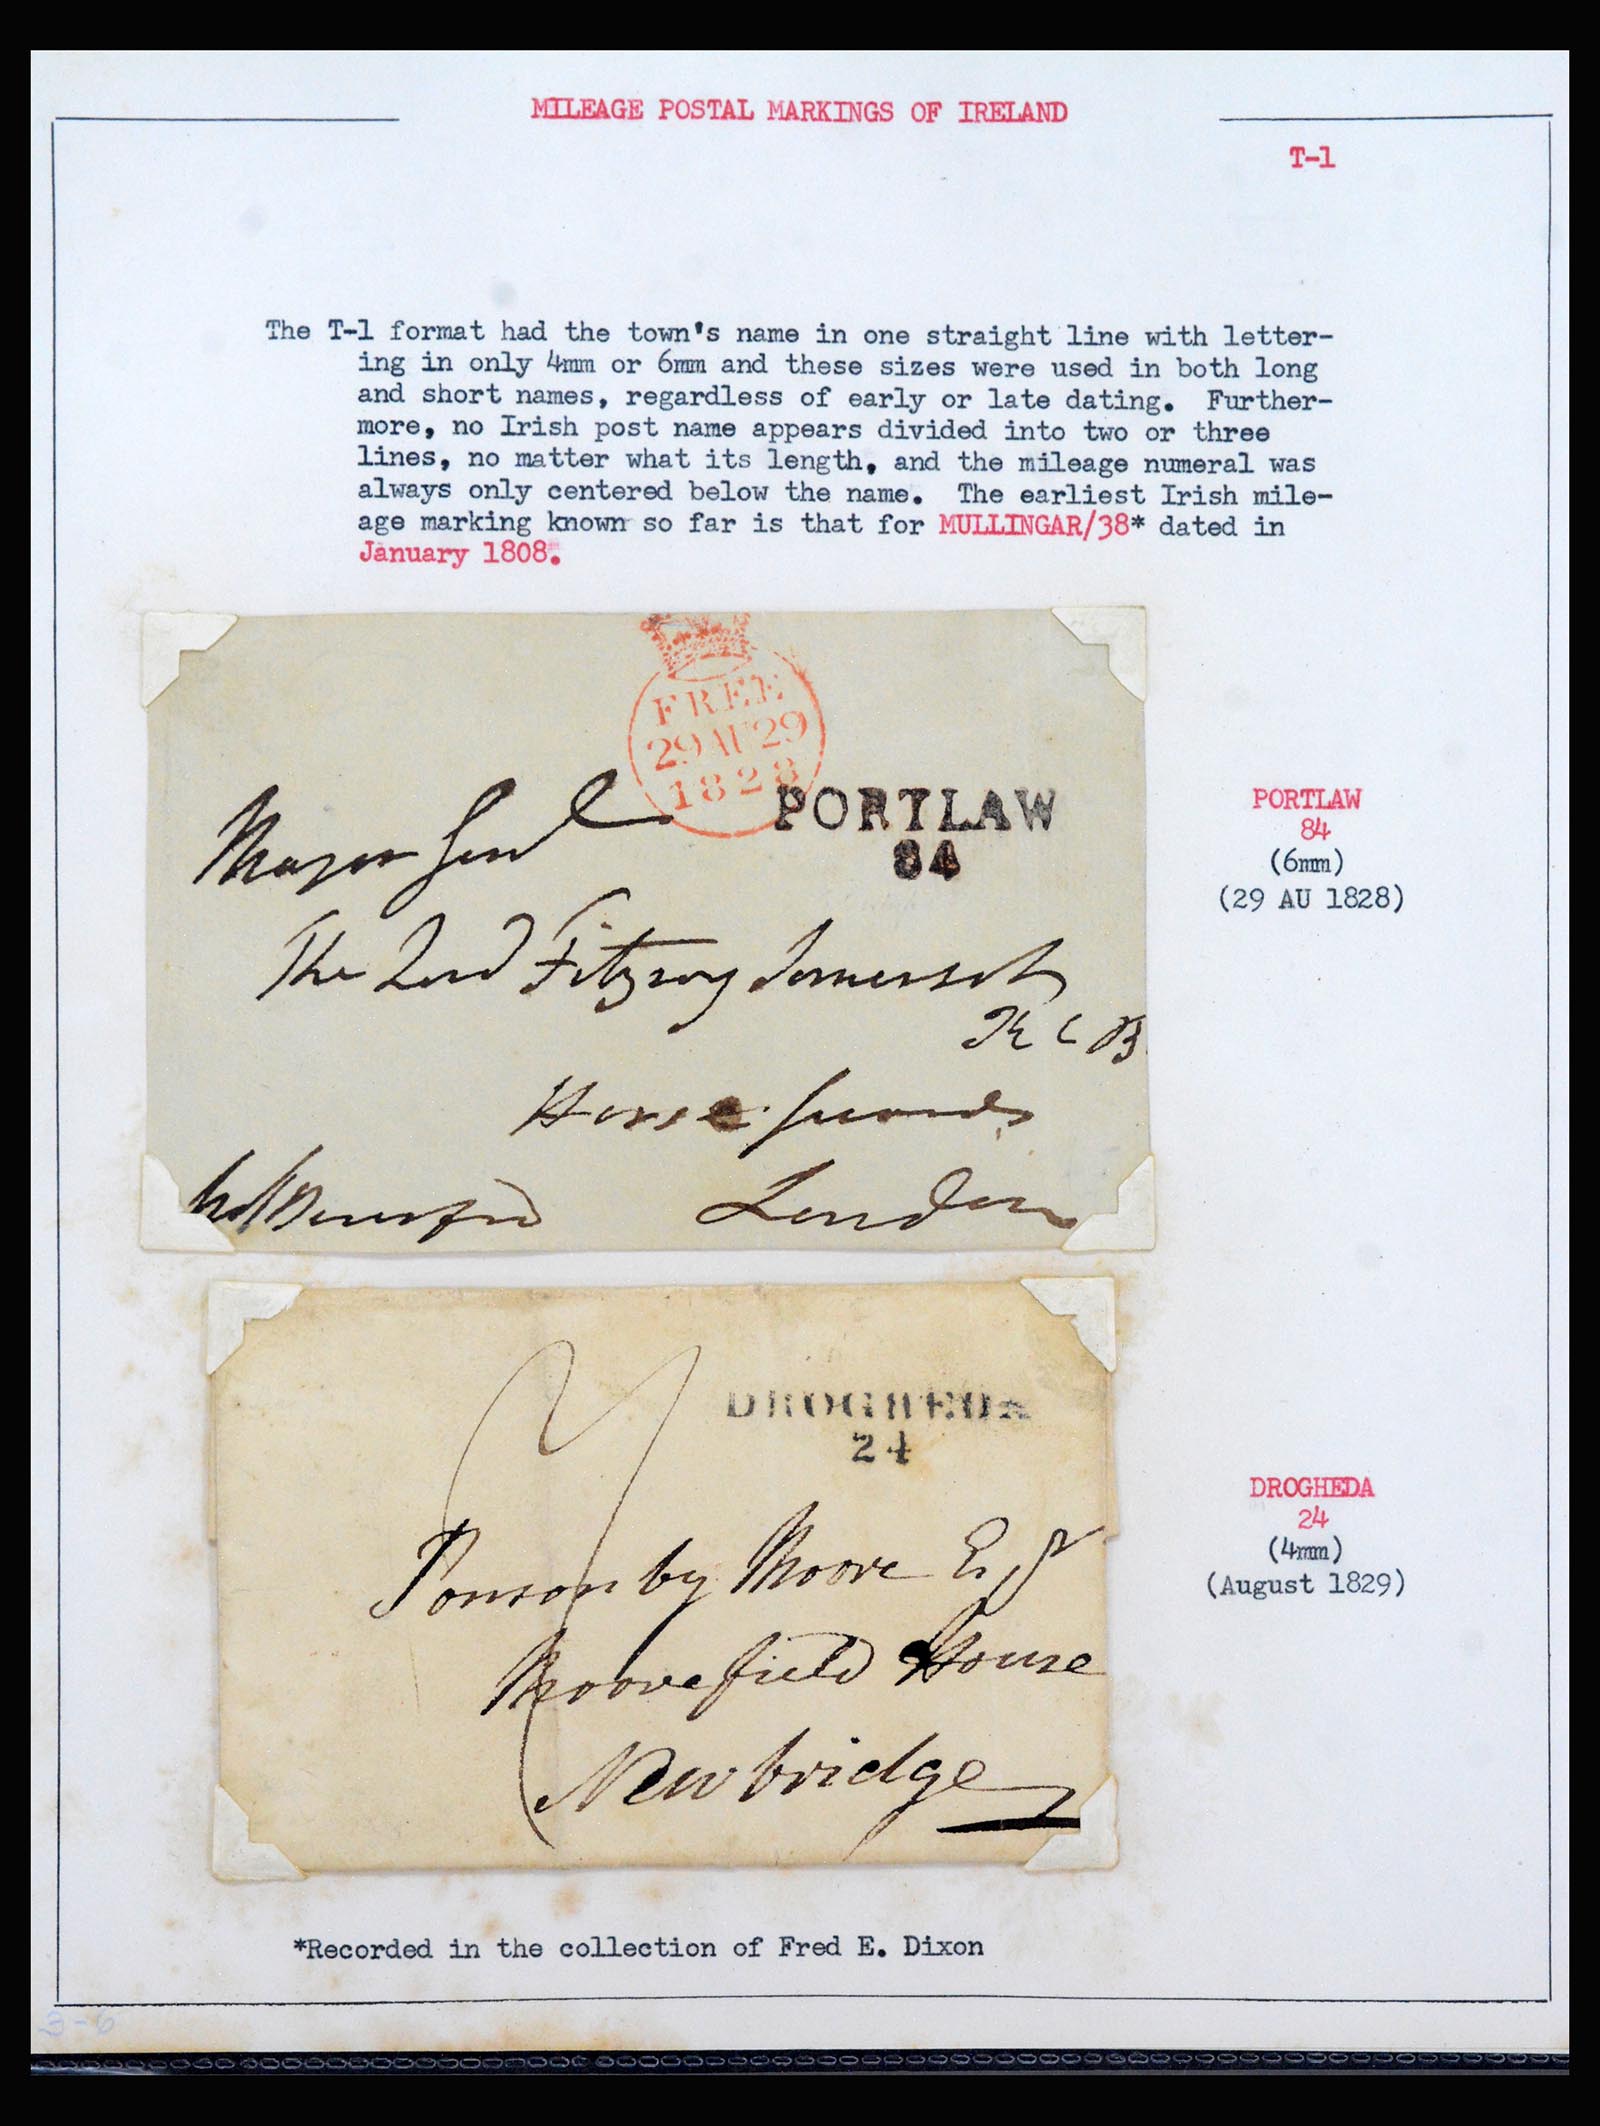 MILEAGE POSTAL MARKINGS OF IRELAND
T-1
The T-1 format had the town's name in one straight line with letter-
ing in only 4mm or 6mm and these sizes were used in both long
and short names, regardless of early or late dating. Further-
more, no Irish post name appears divided into two or three
lines, no matter what its length, and the mileage numeral was
always only centered below the name. The earliest Irish mile-
age marking known so far is that for MULLINGAR/38* dated in
January 1808.
FREE
29 AU 29
1828
PORTLAW
84
Major Genl
The Lord Fitzroy Somerset
K C B
Horse Guards
London
PORTLAW
84
(6mm)
(29 AU 1828)
DROGHEDA
24
Ponsonby Moore Esqr
Moorefield House
Newbridge
DROGHEDA
24
(4mm)
(August 1829)
*Recorded in the collection of Fred E. Dixon
3-6